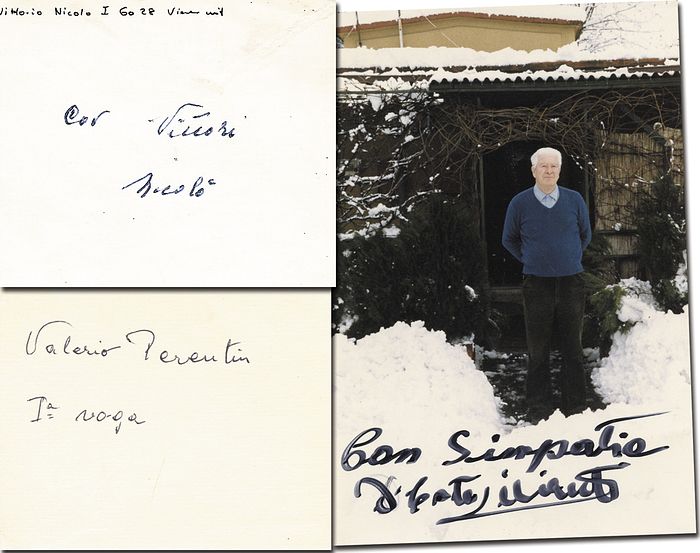 Vittorio Nicolo I Go 28 Vierer mit
Cav Vittori
Nicolò
Valerio Perentin
Iª voga
Con Simpatia